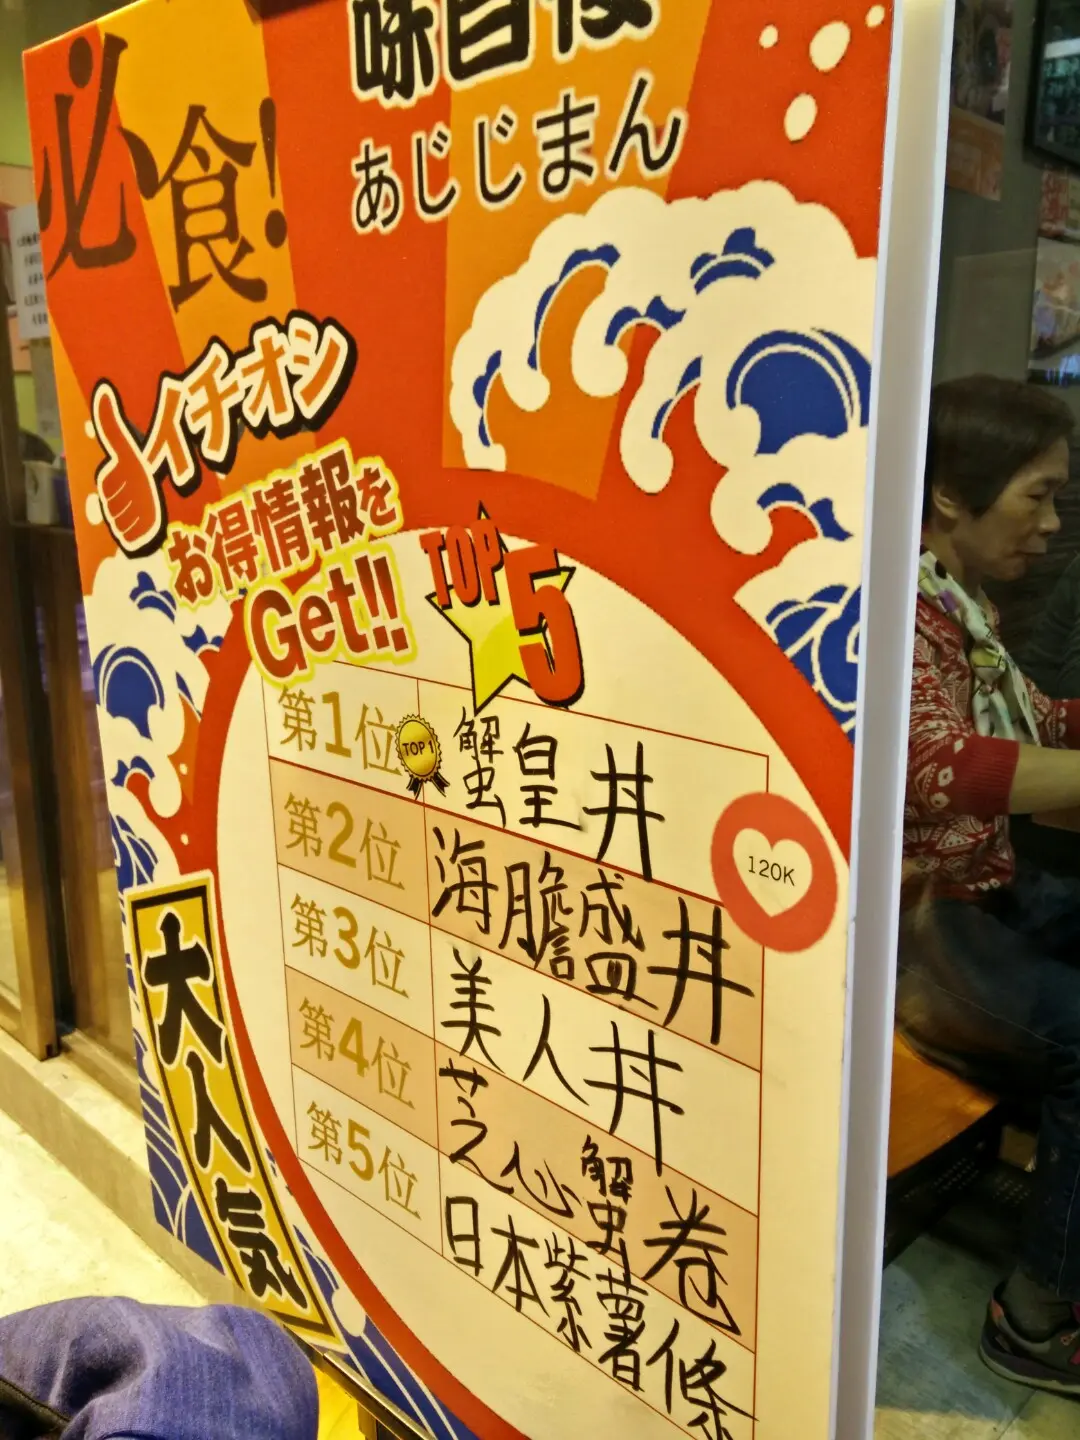 味自慢
あじじまん
必食!
イチオシ
お得情報を
Get!!
TOP 5
第1位 TOP 1 蟹皇丼
120K
第2位 海膽盛丼
第3位 美人丼
第4位 芝心蟹卷
第5位 日本紫薯條
大人気